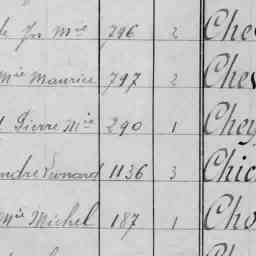 Jn Mie 796 2 Che
Mie Maurice 797 2 Chev
Pierre Mie 290 1 Chey
André Léonard 1136 3 Chic
Mie Michel 187 1 Cho